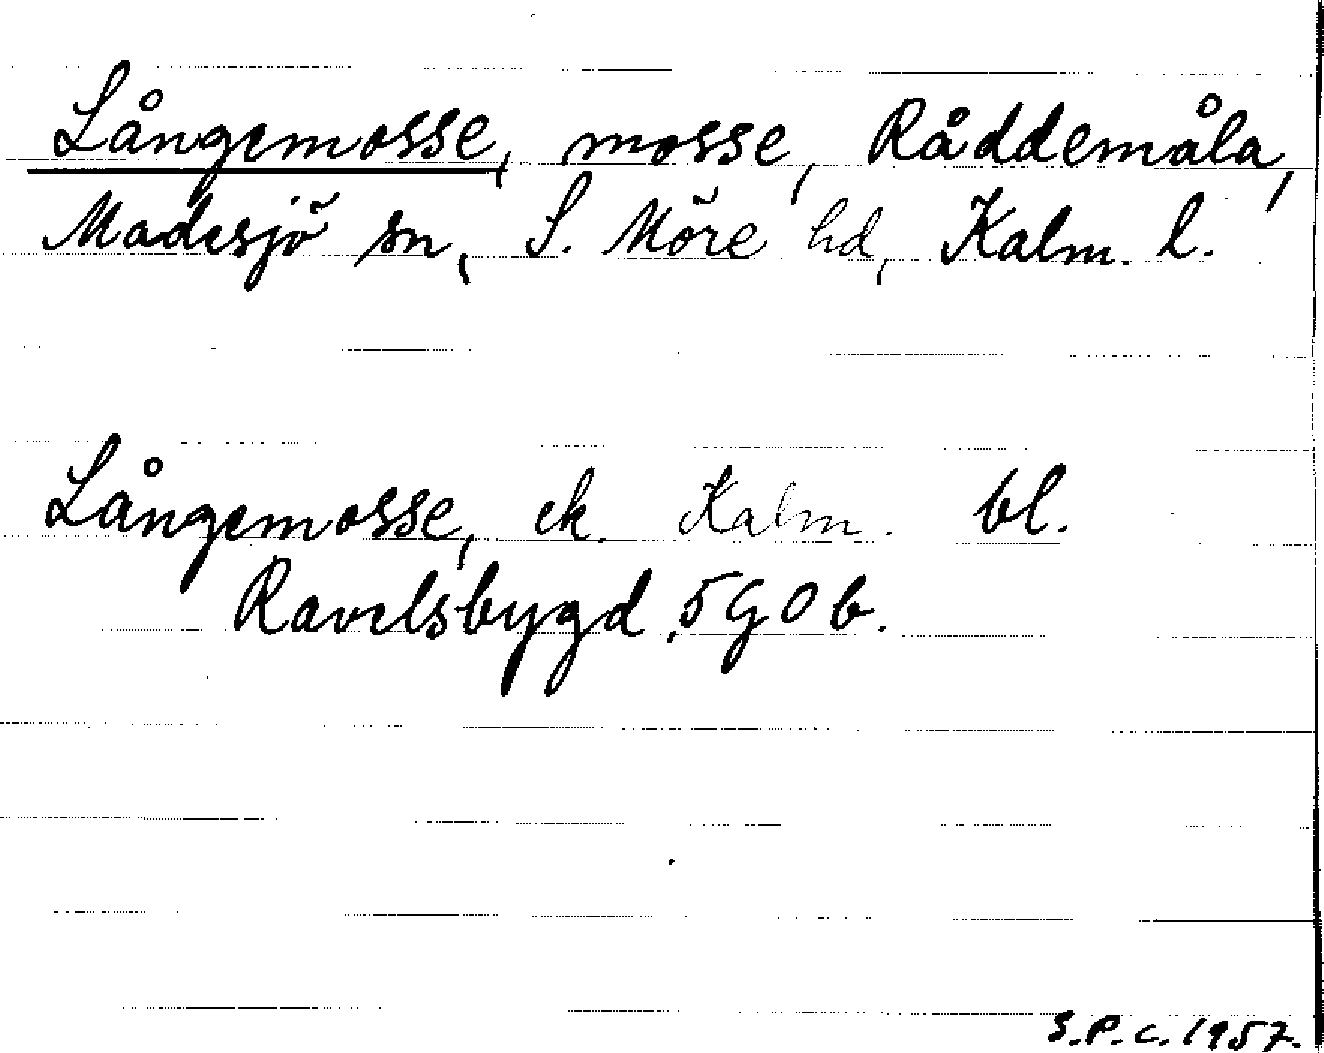 Långemosse, mosse, Råddemåla,
Madesjö sn, S. Möre hd, Kalm. l.
Långemosse, ek. Kalm. bl.
Ravelsbygd, 5 G 0 b.
S.P.C. 1957.